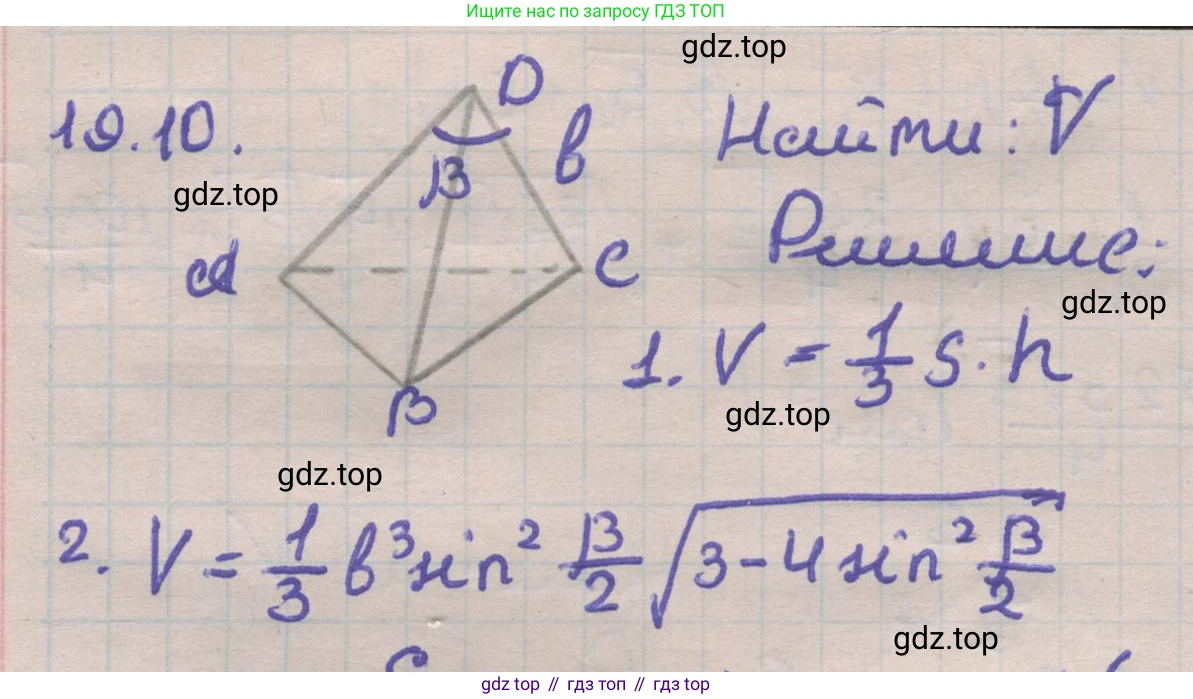 Ищите нас по запросу ГДЗ ТОП
gdz.top
19.10.
D
β
b
Найти: V
gdz.top
A
C
Решение:
gdz.top
1. V = 1/3 S · h
gdz.top
B
gdz.top
2. V = 1/3 b³ sin² β/2 √(3 - 4 sin² β/2)
gdz.top
gdz.top // гдз топ // гдз top